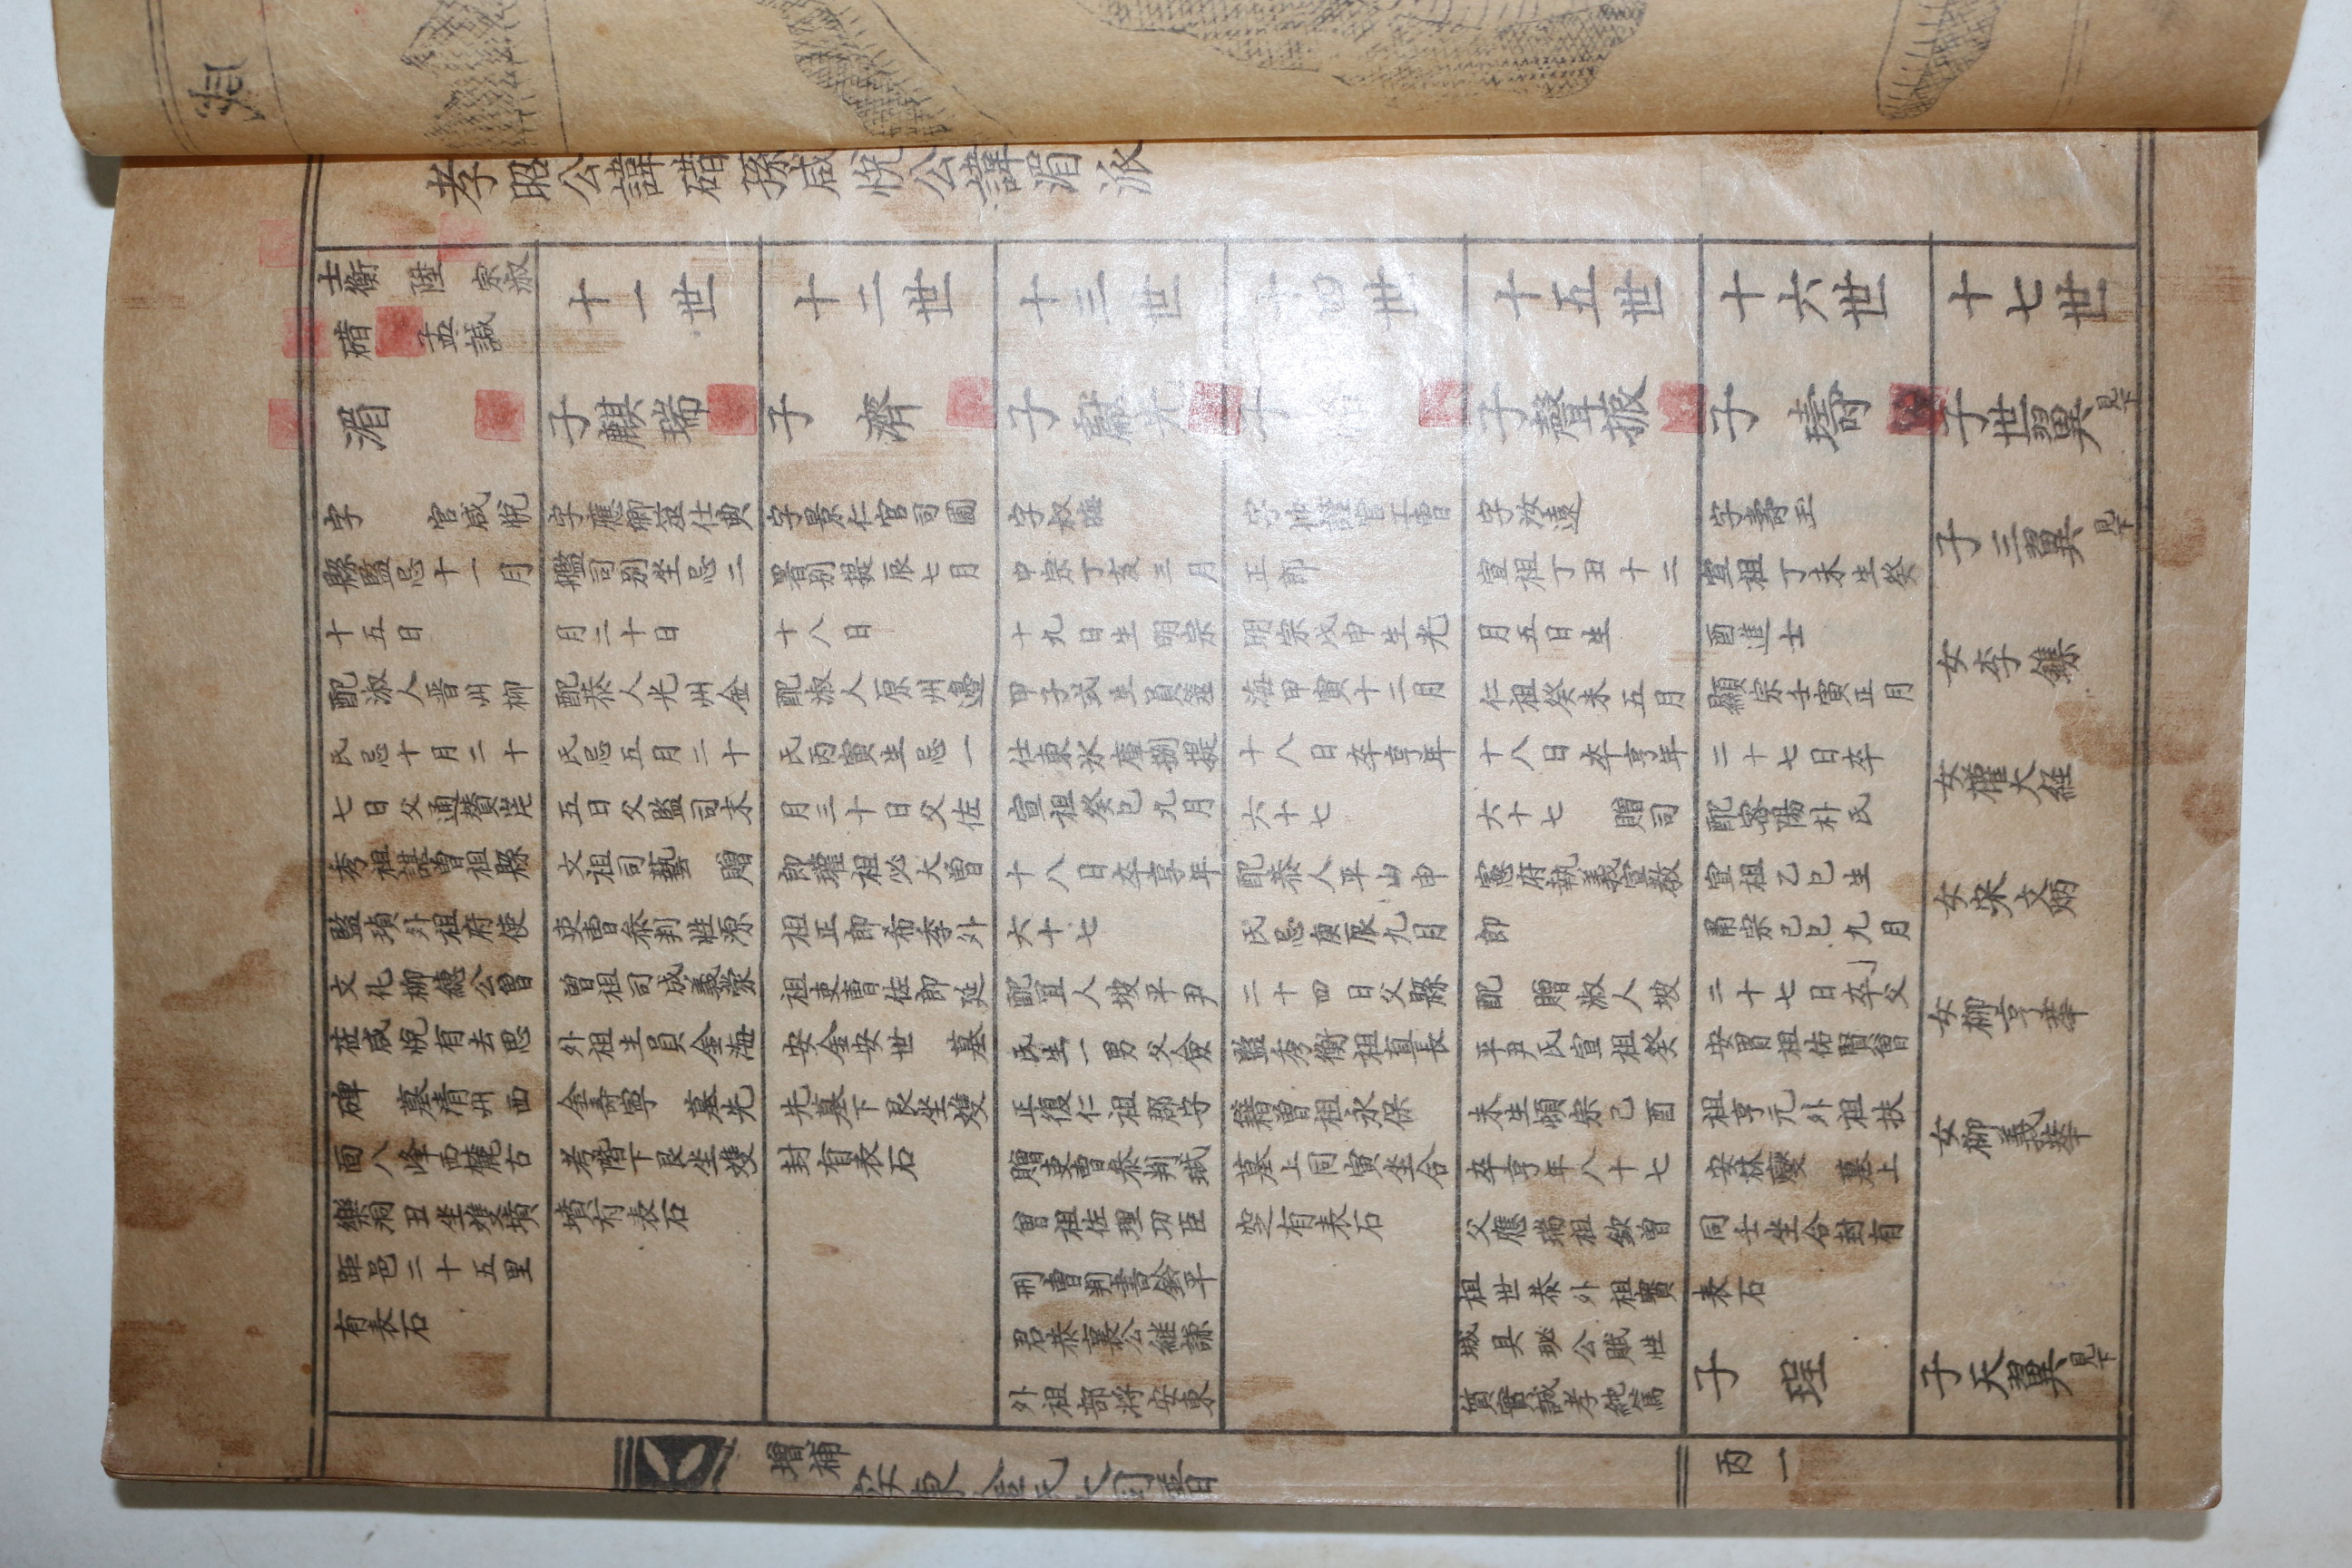 孝昭公諱碏孫咸悅公諱湄派
士衡 陞 宗淑
碏 孟諴
湄
字 官咸悅
縣監忌十一月
十五日
配淑人晋州柳
氏忌十月二十
七日父通贊芷
秀祖諶曾祖縣
監瑱外祖府使
文化柳總公曾
莅咸悅有去思
碑 墓清州西
面八峰西麓古
樂洞丑坐雙墳
距邑二十五里
有表石
十一世
子麒瑞
字應卿筮仕典
艦司別坐忌二
月二十日
配恭人光州金
氏忌五月二十
五日父監司末
文祖司藝 贈
吏曹參判性源
曾祖司成義蒙
外祖生員金海
金壽寧 墓先
考階下艮坐雙
墳有表石
十二世
子 濟
字景仁官司圃
署別提辰七月
十八日
配淑人原州邊
氏丙寅生忌一
月三十日父佐
郎瓘祖必大曾
祖正郎希季外
祖吏曹佐郎延
安金安世 墓
先墓下艮坐雙
封有表石
十三世
子獻光
字叔晦
中宗丁亥三月
十九日生明宗
甲子式生員筮
仕東氷庫捌提
宣祖癸巳九月
十八日卒享年
六十七
配宜人坡平尹
氏生一男父僉
正復仁祖郡守
贈吏曹參判珷
曾祖佐理功臣
刑曹判書鈴平
君恭襄公継謙
外祖部将安東
十四世
子
字 官工曹
正郎
明宗戊申生光
海甲寅十二月
十八日卒享年
六十七
配恭人平山申
氏忌庚辰九月
二十四日父縣
監秀衡祖直長
籍曾祖永保
墓上同寅坐合
窆有表石
十五世
子聲振
字汝遠
宣祖丁丑十二
月五日生
仁祖癸未五月
十八日卒享年
六十七 贈司
憲府執義宣教
郎
配 贈淑人坡
平尹氏宣祖癸
未生顯宗己酉
卒享年八十七
父應瑞祖欽曾
祖世恭外祖賓
城具珌公賦性
質實誠孝純篤
十六世
子 璹
字壽玉
宣祖丁未生癸
酉進士
顯宗壬寅正月
二十七日卒
配密陽朴氏
宣祖乙巳生
甫宗己巳九月
二十七日卒父
安胃祖佑賢曾
祖亨元外祖扶
安林㦤 墓上
同壬坐合封有
表石
子 珵
十七世
子世翼見下
子三翼見下
女李鏶
女權大経
女宋文炳
女柳亨華
女柳義華
子天翼見下
增補
安東金氏大同譜
丙一